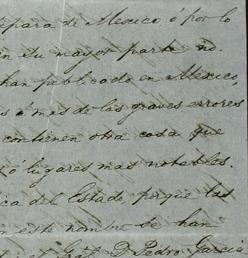 para de Mexico ó por lo
en su mayor parte no.
han publicado en Mexico,
s ó mas de los graves errores
contienen otra cosa que
ó lugares mas notables.
ca del Estado, porque las
en este nombre se han
D. Pedro Garcia